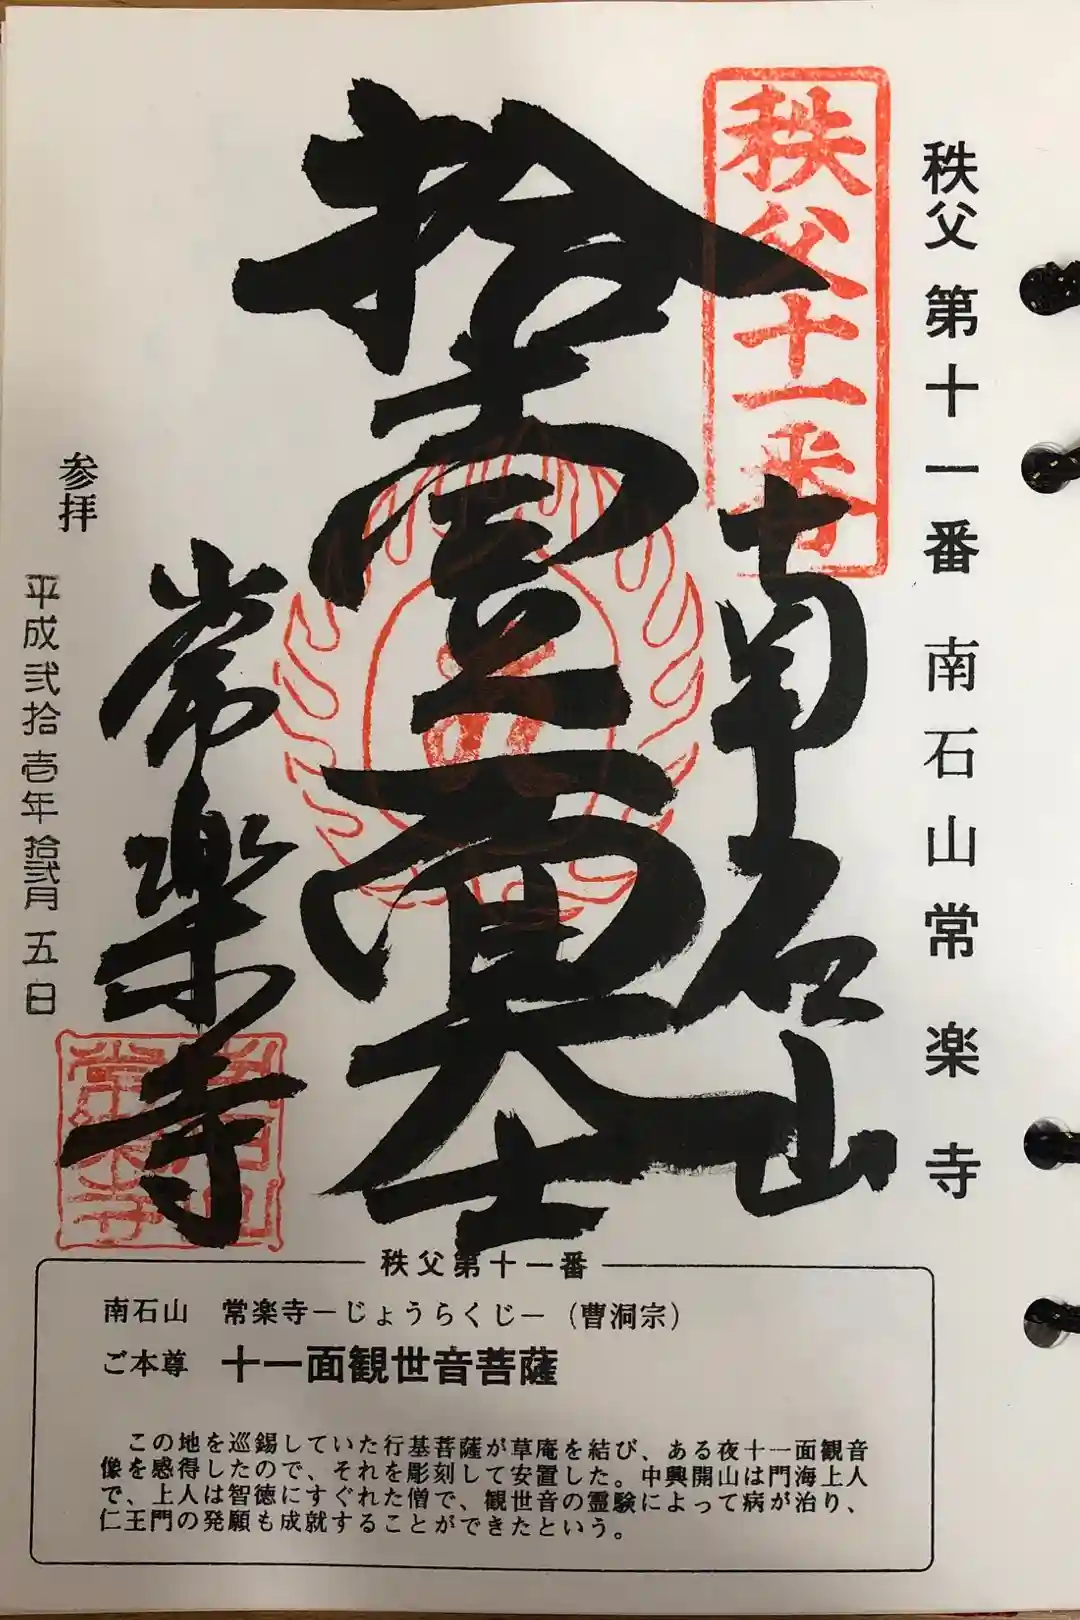 秩父 第十一番 南石山常楽寺
秩父十一番
南石山
拾壹面大士
常楽寺
参拝
平成弐拾壱年拾弐月五日
秩父第十一番
南石山 常楽寺－じょうらくじ－（曹洞宗）
ご本尊 十一面観世音菩薩
この地を巡錫していた行基菩薩が草庵を結び、ある夜十一面観音
像を感得したので、それを彫刻して安置した。中興開山は門海上人
で、上人は智徳にすぐれた僧で、観世音の霊験によって病が治り、
仁王門の発願も成就することができたという。